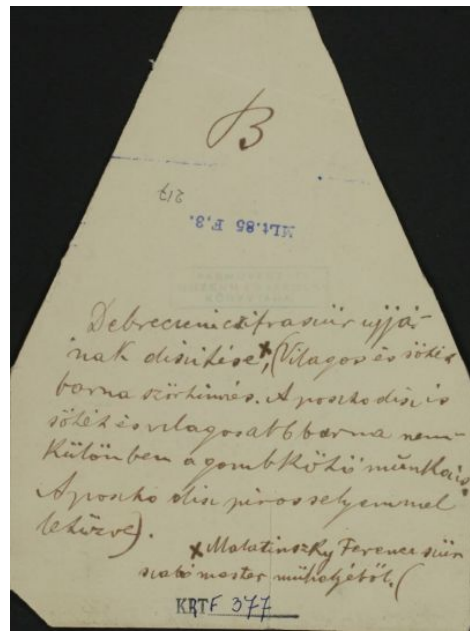 B
217
MLt.85 F,3.
Debreceni cifraszür ujjá-
nak diszitése, x (Világos és sötét
barna szőrhimzés. A poszto disz is
sötét és világosabb barna nem-
különben a gombkötő munka is.
A poszto disz piros selyemmel
letűzve).
x Malatinszky Ferenc szür
szabó mester műhelyéből. (
KRTF 377